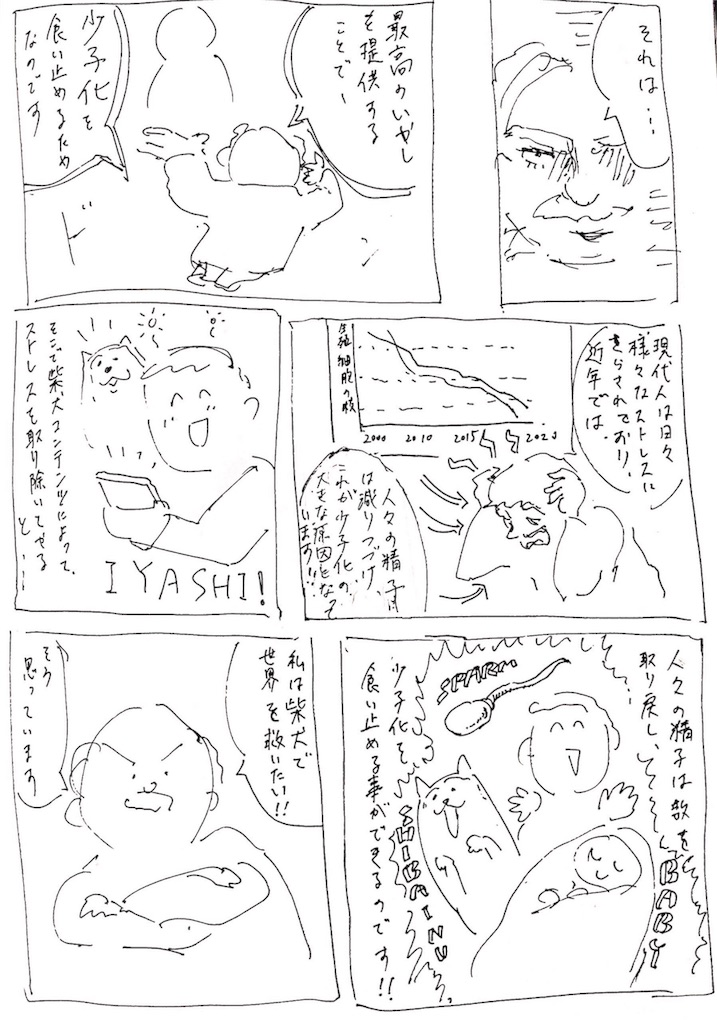 それは…
最高のいやし
を提供する
ことでー
少子化を
食い止めるため
なのです
ドン
現代人は日々
様々なストレスに
さらされており、
近年では、
生殖細胞の数
2000 2010 2015 2020
人々の精子
は減りつづけ、
これが少子化の
大きな原因となって
います!!
そこで柴犬コンテンツによって、
ストレスを取り除いてやる
と…
IYASHI!
人々の精子は数を
取り戻し、
SPARM
BABY
SHIBAINU
少子化を、
食い止める事ができるのです!!
私は柴犬で
世界を救いたい!!
そう
思っています